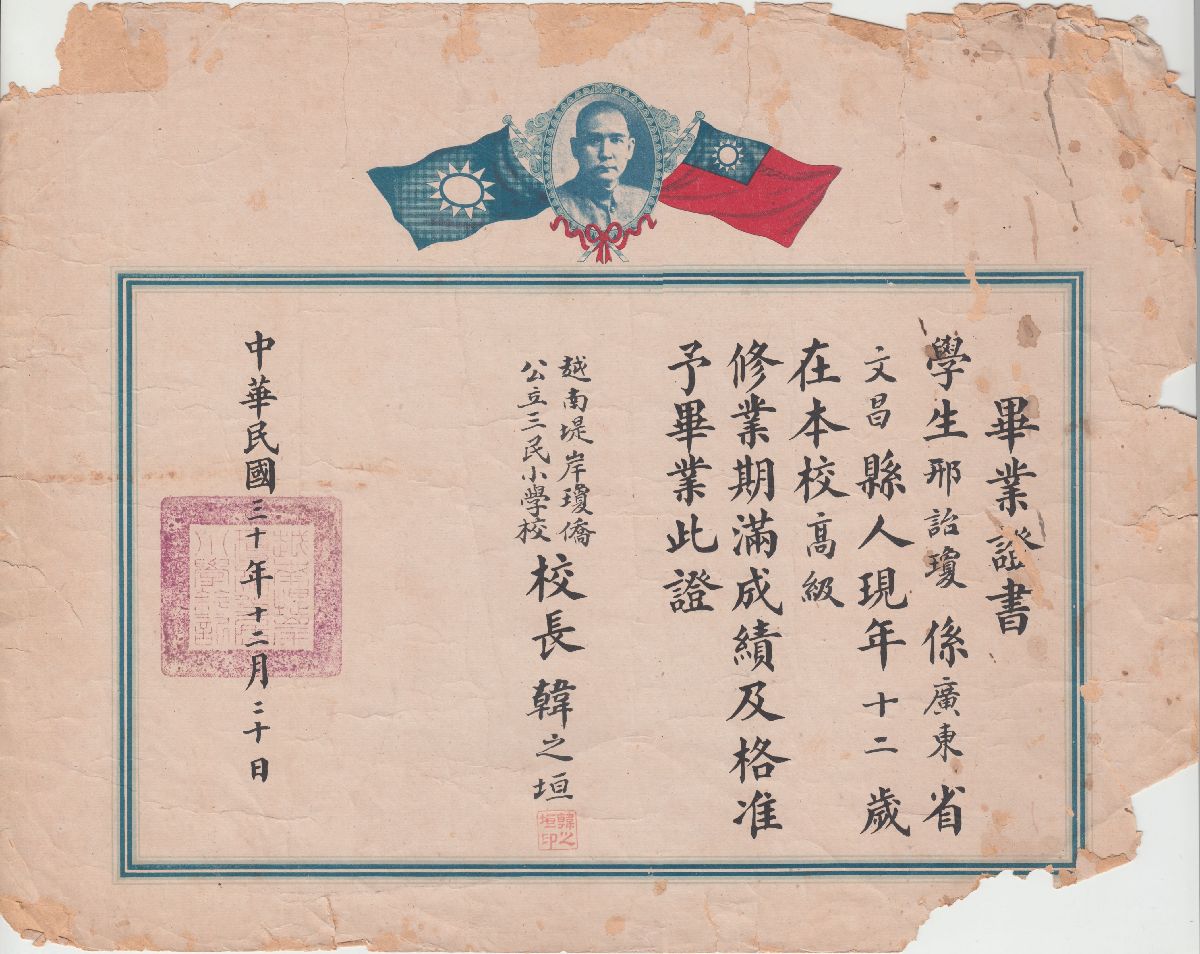 畢業證書
學生邢詒瓊係廣東省
文昌縣人現年十二歲
在本校高級
修業期滿成績及格准
予畢業此證
越南堤岸瓊僑
公立三民小學校
校長韓之垣
韓之垣印
中華民國三十年十二月二十日